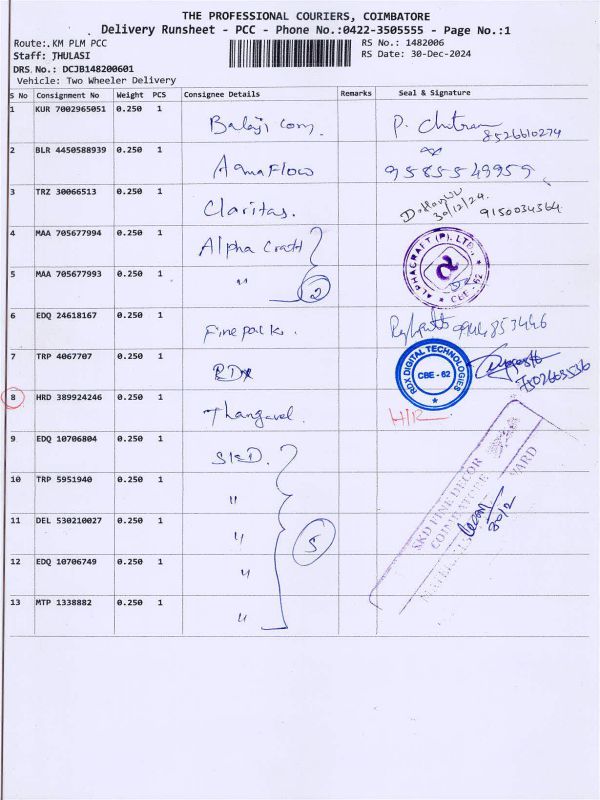 THE PROFESSIONAL COURIERS, COIMBATORE
Delivery Runsheet - PCC - Phone No.:0422-3505555 - Page No.:1
Route:.KM PLM PCC RS No.: 1482006
Staff: JHULASI RS Date: 30-Dec-2024
DRS No.: DCJB148200601
Vehicle: Two Wheeler Delivery
S No Consignment No Weight PCS Consignee Details Remarks Seal & Signature
1 KUR 7002965051 0.250 1 Balaji Com. P. Chitran 8526610274
2 BLR 4450588939 0.250 1 Aqua Flow 9585549959
3 TRZ 30066513 0.250 1 Claritas. 30/12/24. 9150034564
4 MAA 705677994 0.250 1 Alpha Craft ALPHACRAFT (P). LTD. CBE-62
5 MAA 705677993 0.250 1 " 2
6 EDQ 24618167 0.250 1 Fine packs. 853446
7 TRP 4067707 0.250 1 RDX RDX DIGITAL TECHNOLOGIES CBE - 62
8 HRD 389924246 0.250 1 Thangavel. H/R
9 EDQ 10706804 0.250 1 SKD. SKD FINE DECOR COIMBATORE
10 TRP 5951940 0.250 1 " 30/12
11 DEL 530210027 0.250 1 " 5
12 EDQ 10706749 0.250 1 "
13 MTP 1338882 0.250 1 "